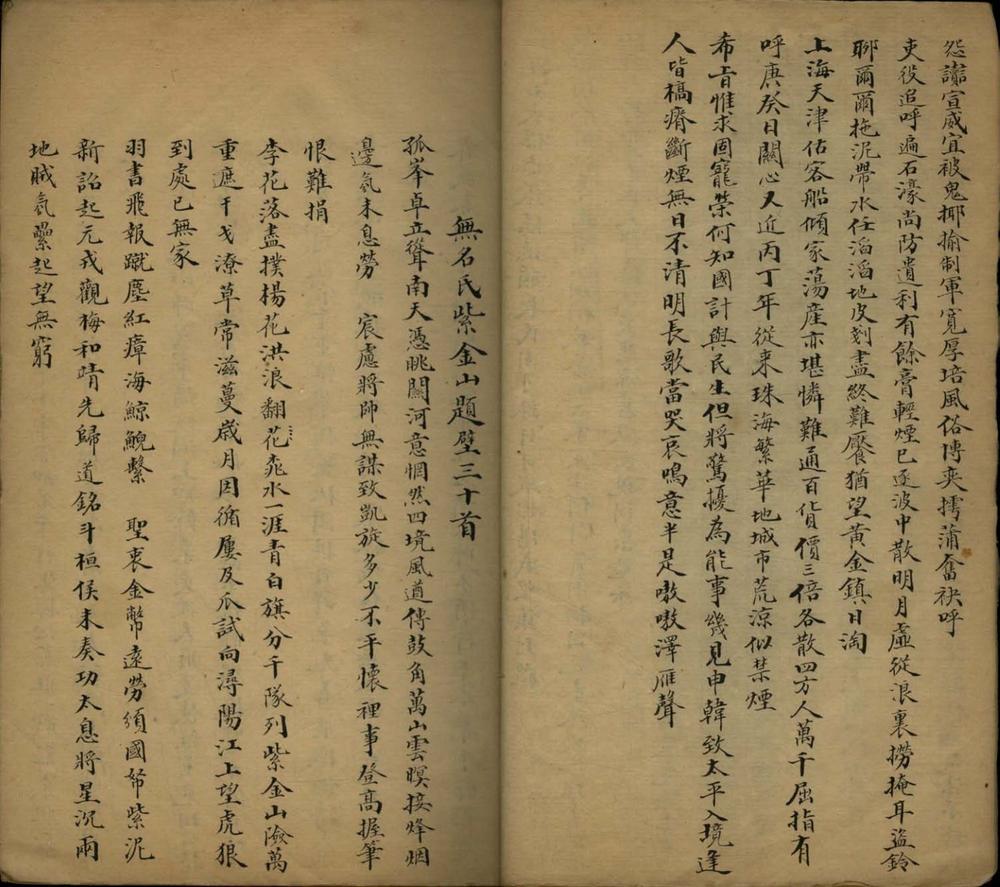 怨讟宣威宜被鬼揶揄制軍寬厚培風俗博奕摴蒲奮袂呼
吏役追呼遍石濠尚防遺利有餘膏輕煙已逐波中散明月虛從浪裏撈掩耳盜鈴
聊爾爾拖泥帶水任滔滔地皮刻盡終難饜猶望黃金鎮日淘
上海天津估客船傾家蕩產亦堪憐難通百貨價三倍各散四方人萬千屈指有
呼庚癸日關心又近丙丁年從來珠海繁華地城市荒涼似禁煙
希旨惟求固寵榮何知國計與民生但將驚擾為能事幾見申韓致太平入境逢
人皆槁瘠斷煙無日不清明長歌當哭哀鳴意半是嗷嗷澤雁聲
無名氏紫金山題壁三十首
孤峯卓立聳南天憑眺關河意惘然四境風遒傳鼓角萬山雲暝接烽烟
邊氛未息勞 宸慮將帥無謀致凱旋多少不平懷裡事登高握筆
恨難捐
李花落盡撲楊花洪浪翻花森水一涯青白旗分千隊列紫金山險萬
重遮干戈潦草常滋蔓歲月因循屢及瓜試向潯陽江上望虎狼
到處已無家
羽書飛報蹴塵紅瘴海鯨鯢繫 聖衷金幣遠勞頒國帑紫泥
新詔起元戎觀梅和靖先歸道銘斗桓侯未奏功太息將星沉兩
地賊氛纍起望無窮